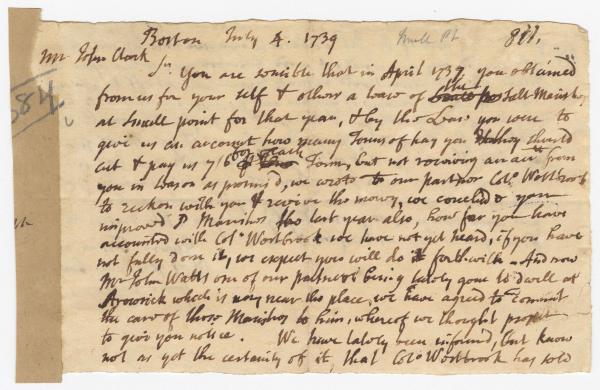 Boston July 4. 1739 Small Pt 811.
Mr John Clark
Sr You are sensible that in April 1737 you obtained
from us for your self & others a Lease of the Salt Marish
at Small point for that year, & by the Lease you were to
give us an account how many Tonns of hay you should
cut & pay us 7/6 for each Tonn, but not receiving an acct from
you in season as promis'd, we wrote to our partner Colo. Westbrook
to reckon with you & receive the money, we conclude you
improved ye Marishes the last year also, how far you have
accounted with Colo. Westbrook we have not yet heard, if you have
not fully done it, we expect you will do it forthwith. And now
Mr John Watts one of our partners being lately gone to dwell at
Arowsick which is very near the place, we have agreed to commit
the care of those Marishes to him, whereof we thought proper
to give you notice. We have lately been informed, but know
not as yet the certainty of it, that Colo. Westbrook has sold
584